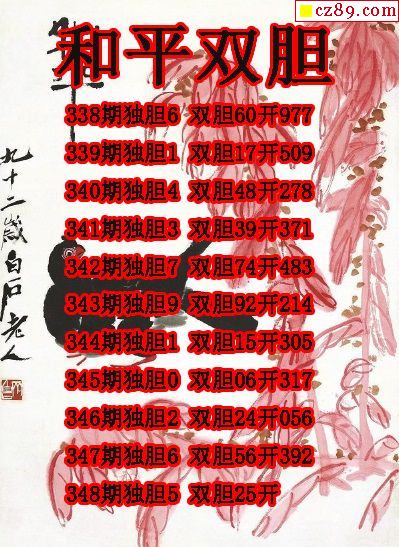 cz89.com
和平双胆
338期独胆6 双胆60开977
339期独胆1 双胆17开509
340期独胆4 双胆48开278
341期独胆3 双胆39开371
342期独胆7 双胆74开483
343期独胆9 双胆92开214
344期独胆1 双胆15开305
345期独胆0 双胆06开317
346期独胆2 双胆24开056
347期独胆6 双胆56开392
348期独胆5 双胆25开
九十二岁白石老人